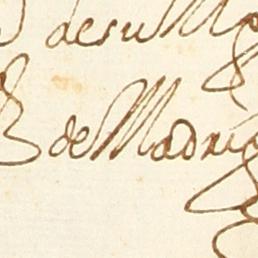 de su M
de Madrid